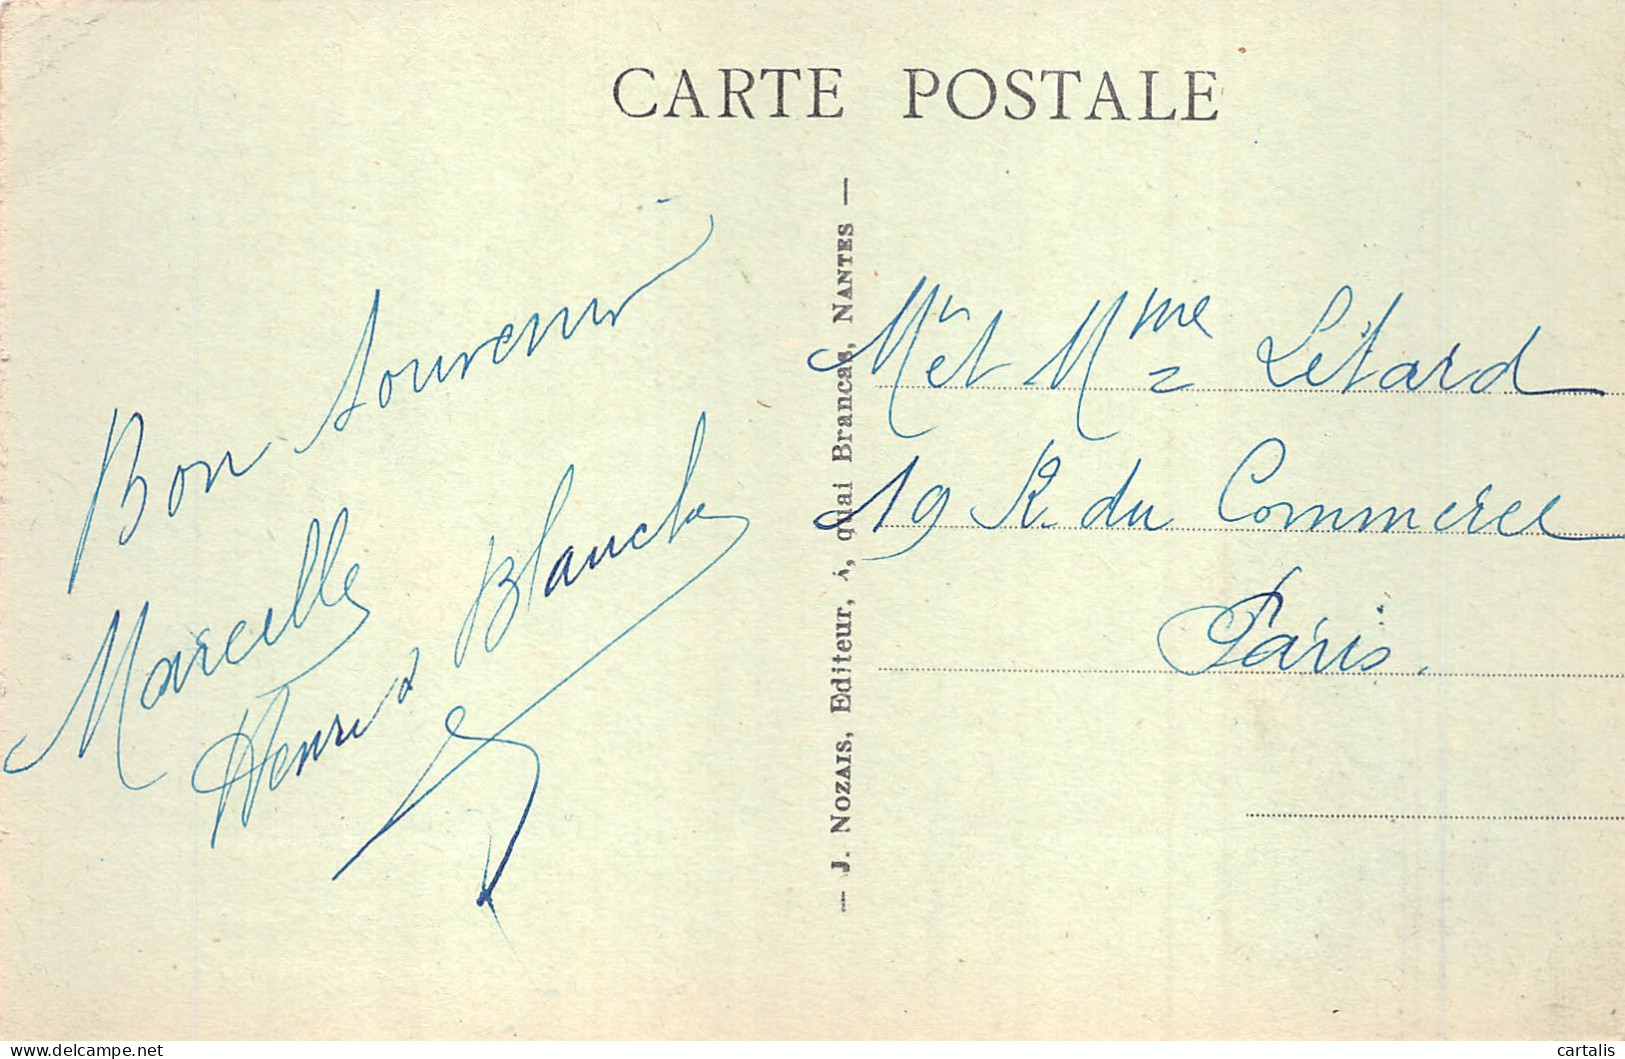 CARTE POSTALE
Bon Souvenir
Marcelle
Henri & Blanche
— J. Nozais, Editeur, quai Brancas, Nantes —
Mr et Mme Létard
19 R. du Commerce
Paris.
www.delcampe.net
cartalis